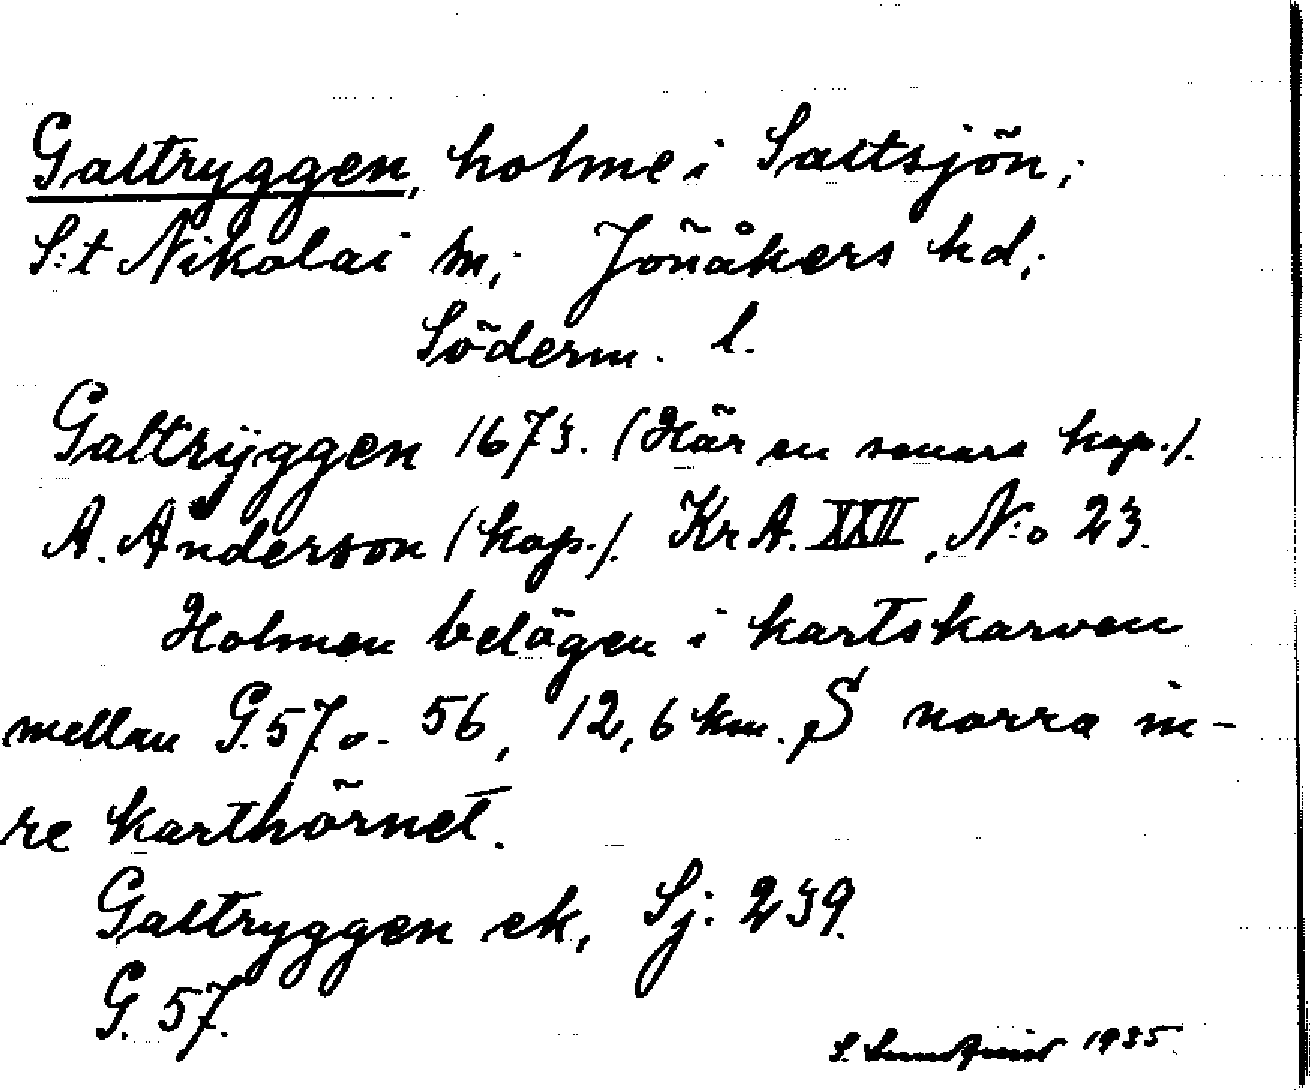 Galtryggen, holme i Saltsjön,
S:t Nikolai sn, Jönåkers hd,
Söderm. l.
Galtrÿggen 1673. (Här en senare kop.).
A. Anderson (kop.). Kr A. XXII, N:o 23.
Holmen belägen i kartskarven
mellan G.57. o. 56, 12,6 km. S norra in-
re karthörnet.
Galtryggen ek, Sj: 239.
G. 57.
S. Lundqvist 1935